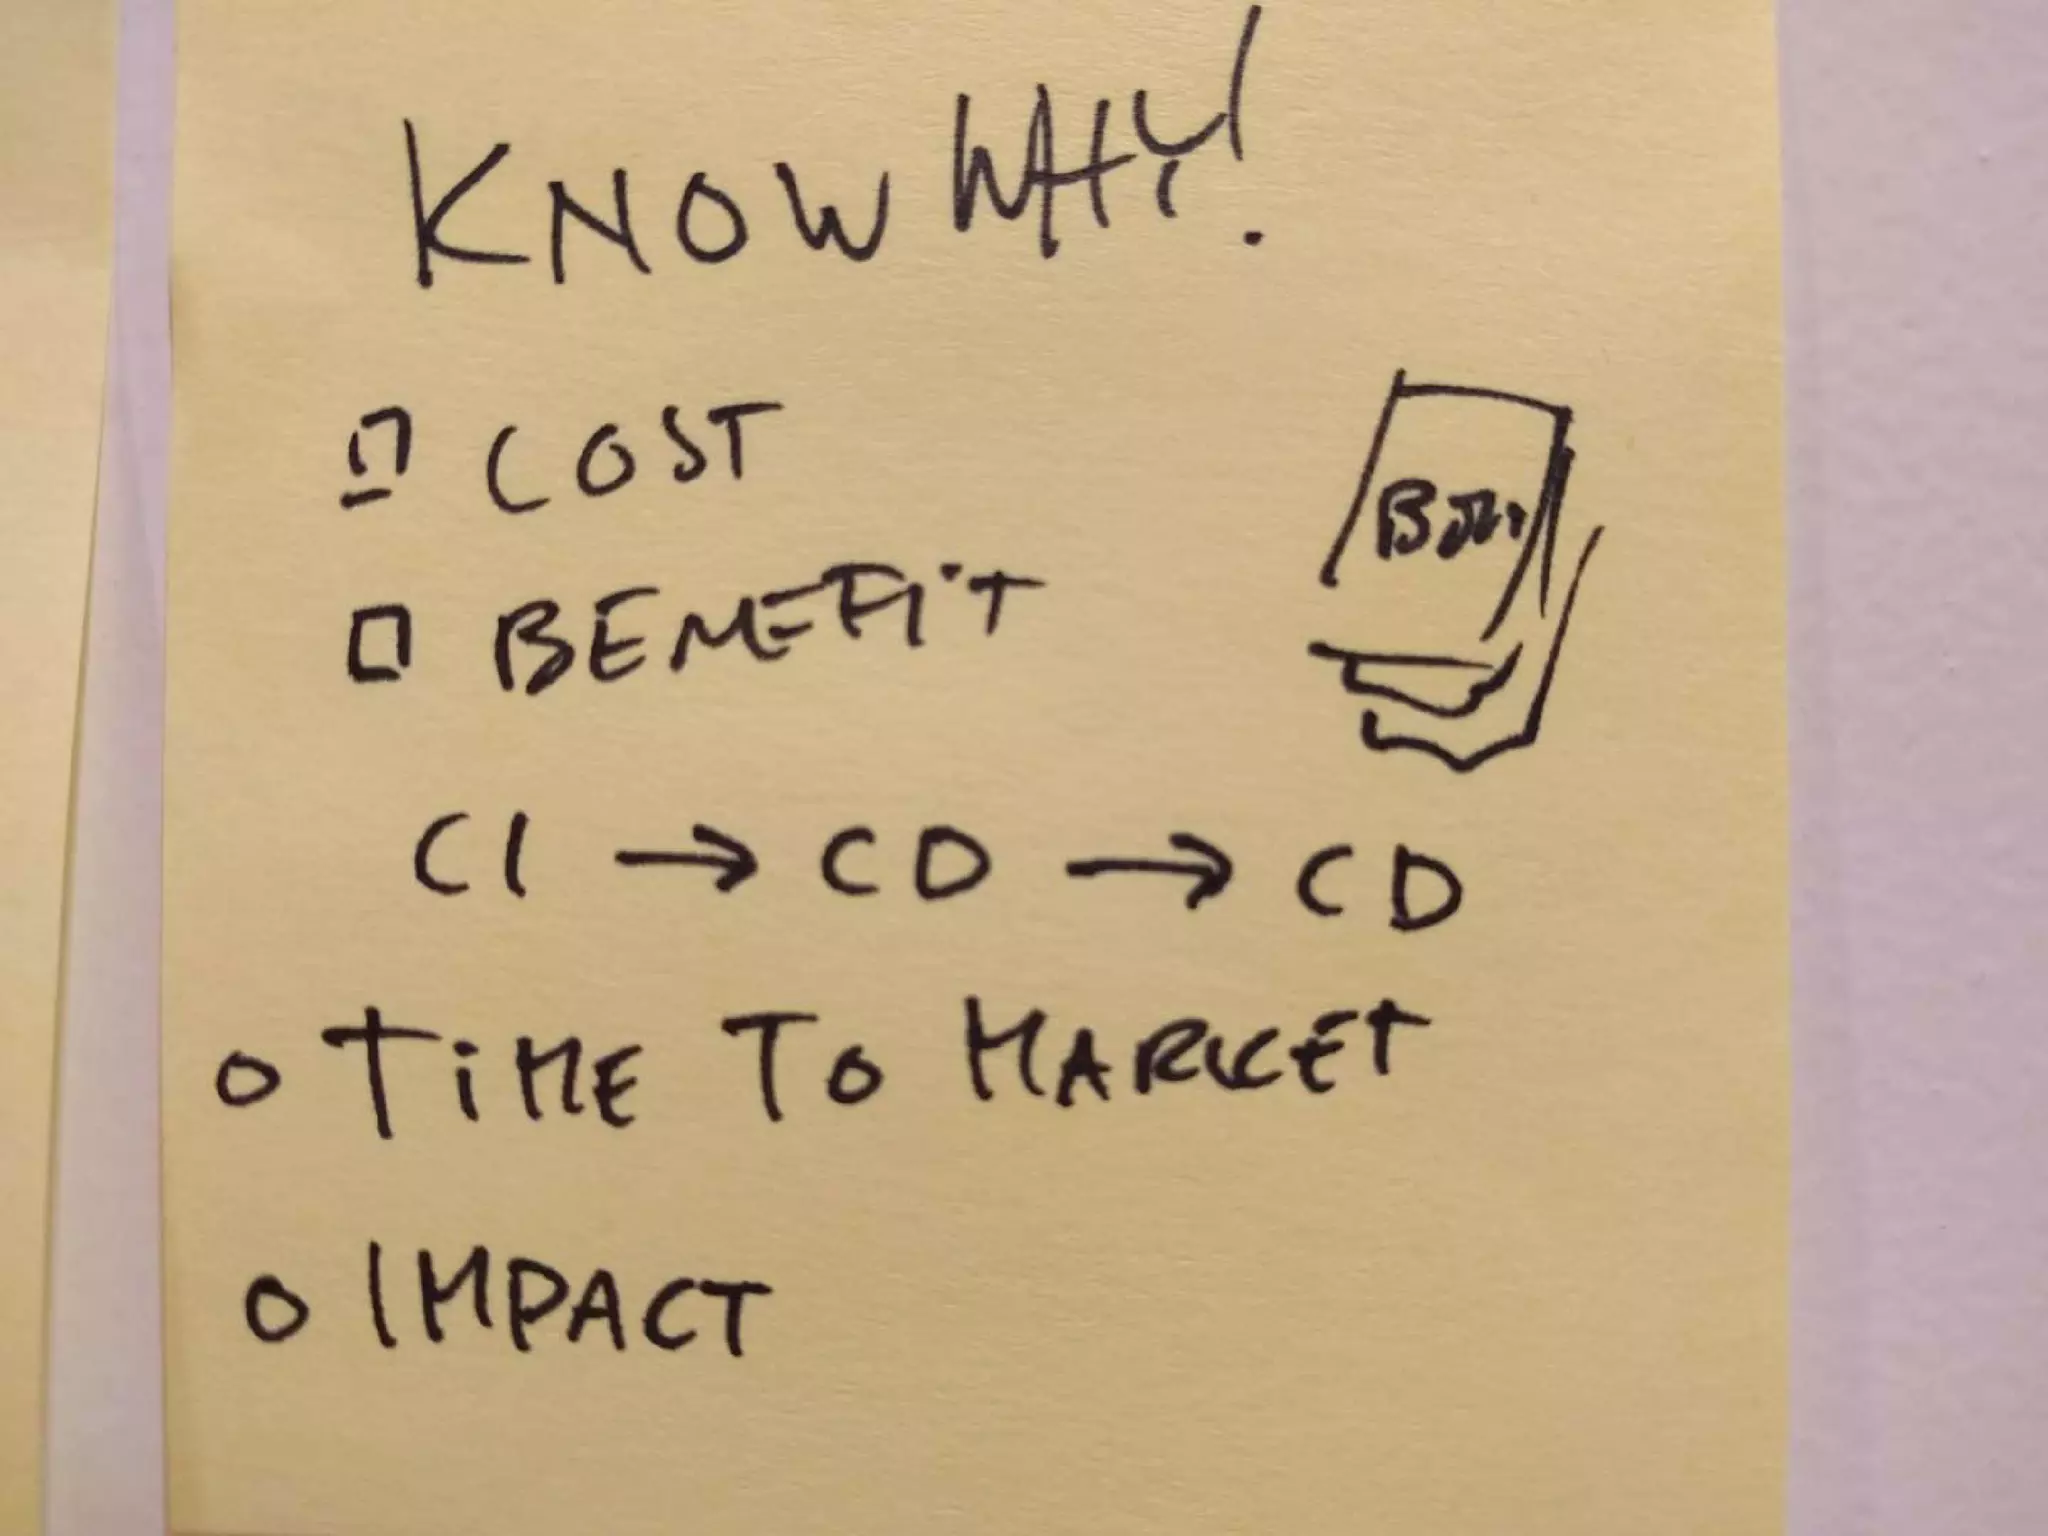 KNOW WHY!
COST
BENEFIT
CI → CD → CD
TIME TO MARKET
IMPACT